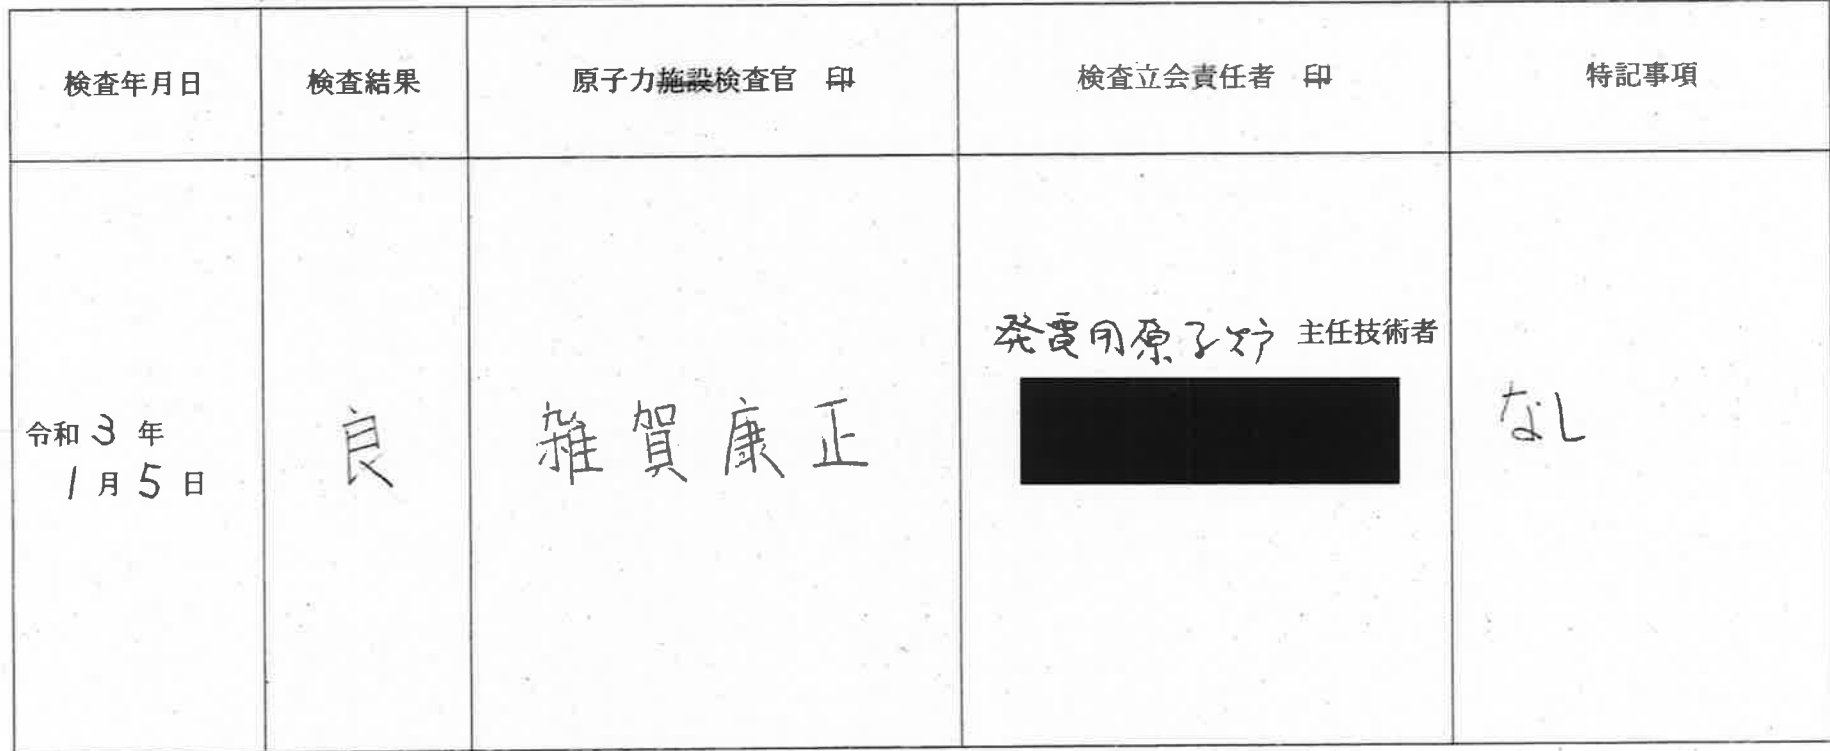 検査年月日
検査結果
原子力施設検査官 印
検査立会責任者 印
特記事項
令和3年
1月5日
良
雑賀康正
発電用原子炉 主任技術者
なし